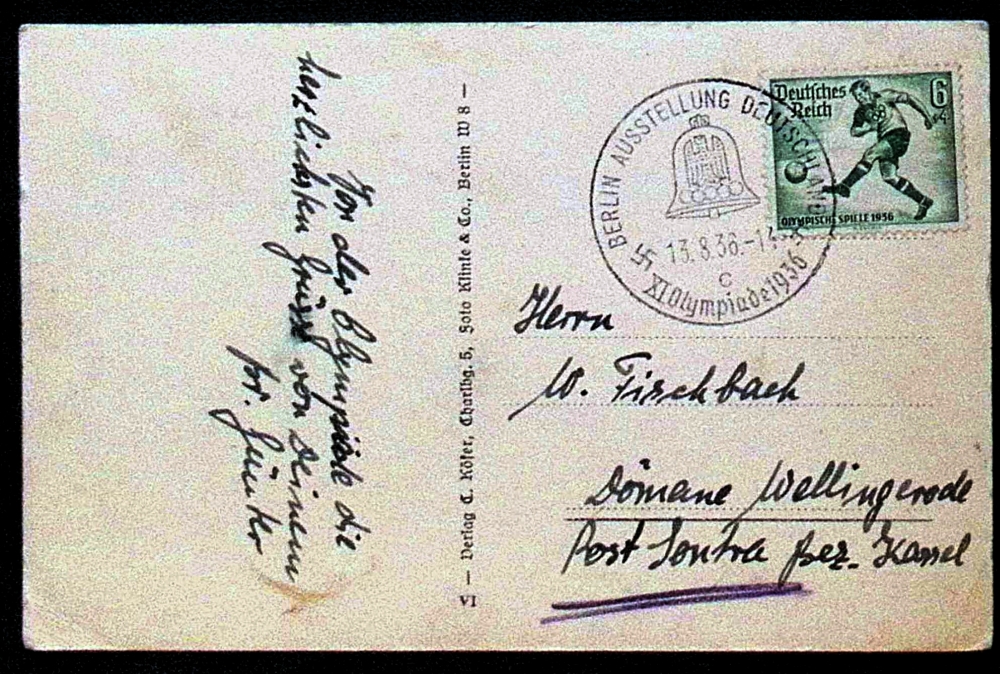 Von der Olympiade die
herzlichsten Grüsse von Deinem
Fr. Günter
VI — Verlag C. Köfer, Charlbg. 5, Foto Klinke & Co., Berlin W 8 —
BERLIN AUSSTELLUNG DEUTSCHLAND
13.8.36.-14
c
XI Olympiade 1936
Deutsches
Reich
6
+4
OLYMPISCHE SPIELE 1936
Herrn
W. Fischbach
Domäne Wellingerode
Post Sontra Bez. Kassel